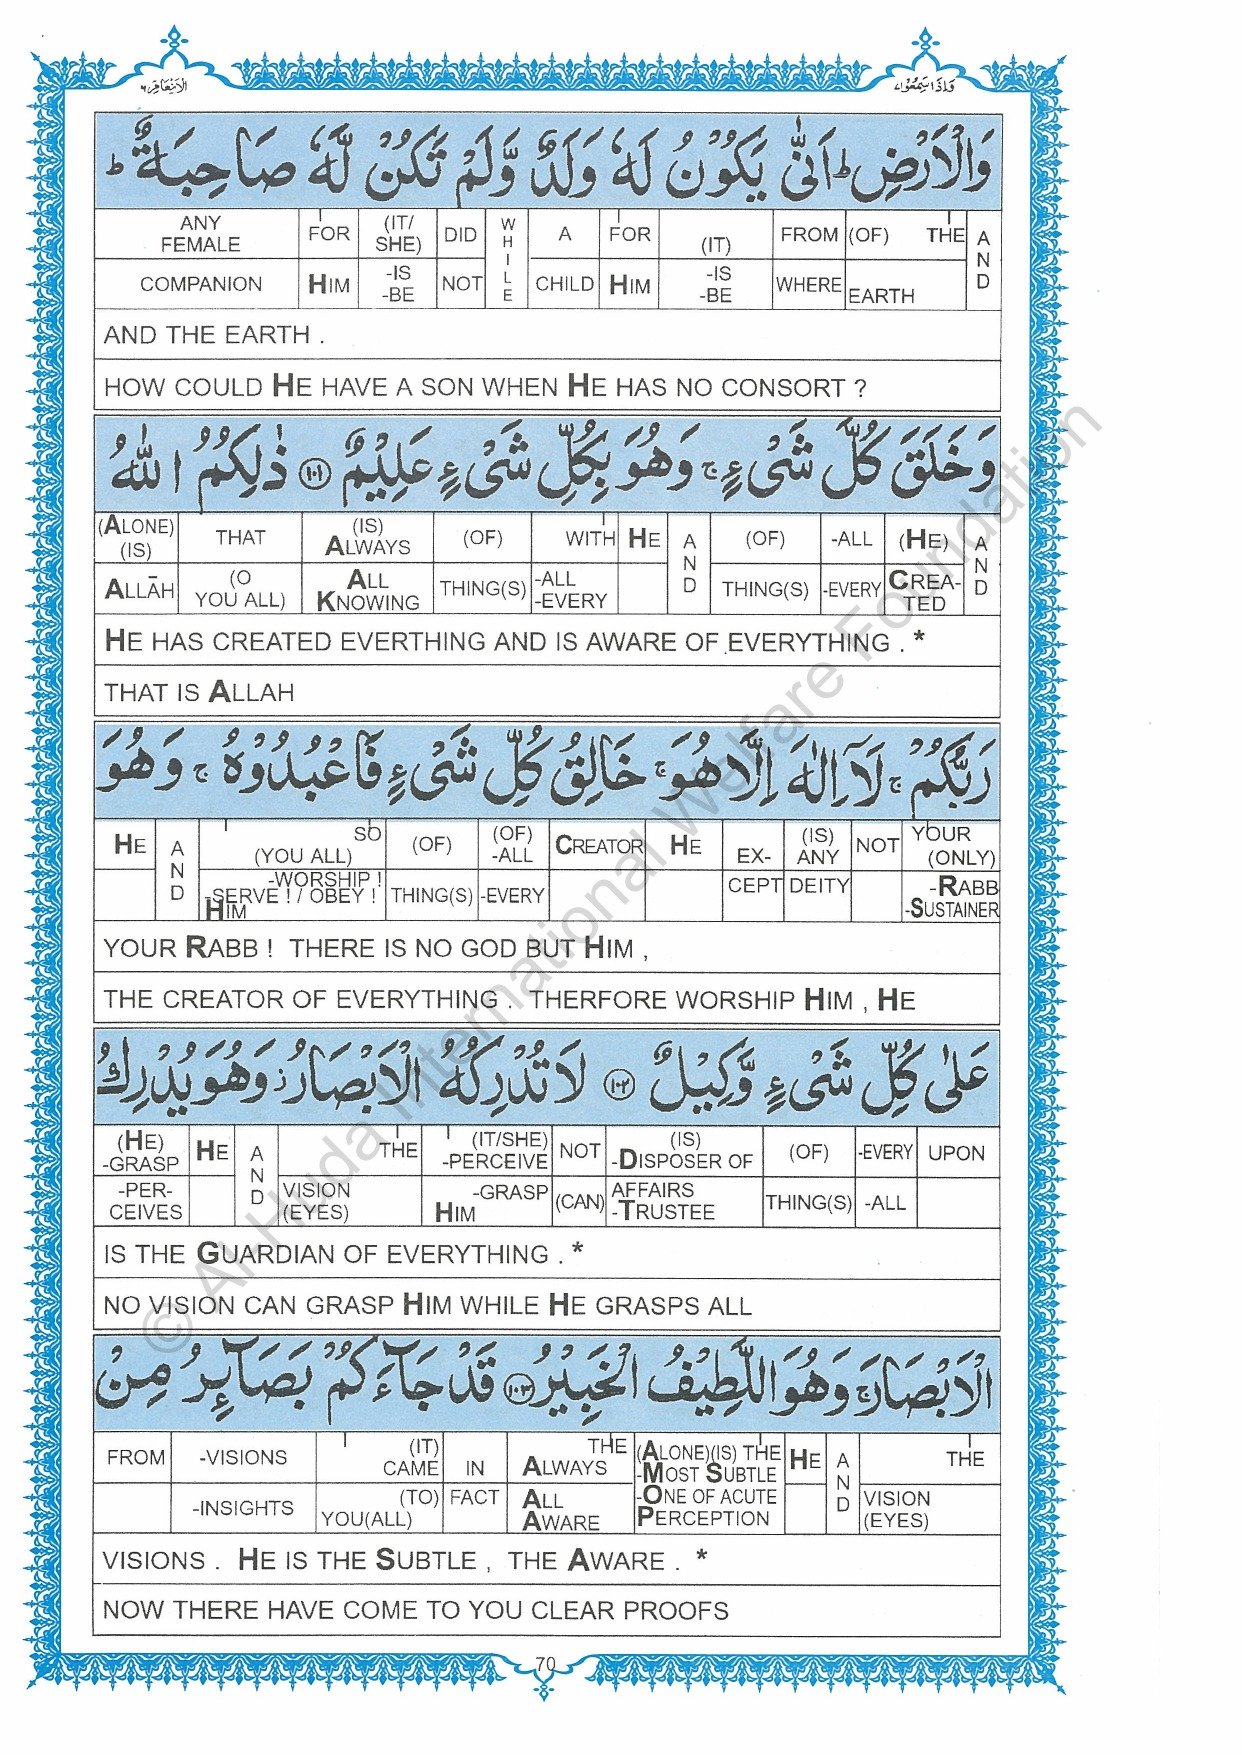 الانعام ٦
واذا سمعوا ٧
وَالْاَرْضِ ؕ اَنّٰى يَكُوْنُ لَهٗ وَلَدٌ وَّلَمْ تَكُنْ لَّهٗ صَاحِبَةٌ ؕ
ANY FEMALE | FOR | (IT/ SHE) | DID | WHILE | A | FOR | (IT) | FROM | (OF) THE | AND
COMPANION | HIM | -IS -BE | NOT | CHILD | HIM | -IS -BE | WHERE | EARTH
AND THE EARTH .
HOW COULD HE HAVE A SON WHEN HE HAS NO CONSORT ?
وَخَلَقَ كُلَّ شَىْءٍ ۚ وَهُوَ بِكُلِّ شَىْءٍ عَلِيْمٌ ١٠١ ذٰلِكُمُ اللّٰهُ
(ALONE) (IS) | THAT | (IS) ALWAYS | (OF) | WITH | HE | AND | (OF) | -ALL | (HE) | AND
ALLĀH | (O YOU ALL) | ALL KNOWING | THING(S) | -ALL -EVERY | THING(S) | -EVERY | CREA- TED
HE HAS CREATED EVERTHING AND IS AWARE OF EVERYTHING . *
THAT IS ALLAH
رَبُّكُمْ ۚ لَاۤ اِلٰهَ اِلَّا هُوَ ۚ خَالِقُ كُلِّ شَىْءٍ فَاعْبُدُوْهُ ۚ وَهُوَ
HE | AND | SO (YOU ALL) | (OF) | (OF) -ALL | CREATOR | HE | EX- | (IS) ANY | NOT | YOUR (ONLY)
-WORSHIP ! -SERVE ! / OBEY ! HIM | THING(S) | -EVERY | CEPT | DEITY | -RABB -SUSTAINER
YOUR RABB ! THERE IS NO GOD BUT HIM ,
THE CREATOR OF EVERYTHING . THERFORE WORSHIP HIM , HE
عَلٰى كُلِّ شَىْءٍ وَّكِيْلٌ ١٠٢ لَا تُدْرِكُهُ الْاَبْصَارُ ۫ وَهُوَ يُدْرِكُ
(HE) -GRASP | HE | AND | THE | (IT/SHE) -PERCEIVE | NOT | (IS) -DISPOSER OF | (OF) | -EVERY | UPON
-PER- CEIVES | VISION (EYES) | -GRASP HIM | (CAN) | AFFAIRS -TRUSTEE | THING(S) | -ALL
IS THE GUARDIAN OF EVERYTHING . *
NO VISION CAN GRASP HIM WHILE HE GRASPS ALL
الْاَبْصَارَ ۚ وَهُوَ اللَّطِيْفُ الْخَبِيْرُ ١٠٣ قَدْ جَآءَكُمْ بَصَآئِرُ مِنْ
FROM | -VISIONS | (IT) CAME | IN | THE ALWAYS | (ALONE)(IS) THE -MOST SUBTLE | HE | AND | THE
-INSIGHTS | (TO) YOU(ALL) | FACT | ALL AWARE | -ONE OF ACUTE PERCEPTION | VISION (EYES)
VISIONS . HE IS THE SUBTLE , THE AWARE . *
NOW THERE HAVE COME TO YOU CLEAR PROOFS
70
© Al-Huda International Welfare Foundation